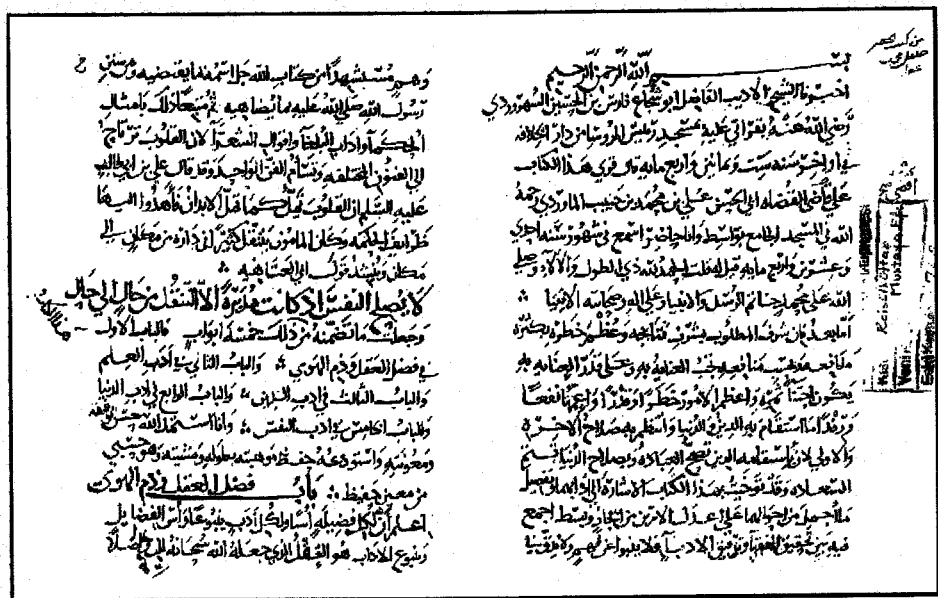 بسم الله الرحمن الرحيم
اخبرنا الشيخ الاديب الفاضل ابو شجاع فارس بن الحسين السهروردي
رضي الله عنه بقراتي عليه بمسجد رئيس الروسا من دار الخلافه
في اواخر سنه ست وثمانين واربع مايه قال قري هذا الكتاب
على قاضي القضاه ابي الحسن علي بن محمد بن حبيب الماوردي رحمه
الله في المسجد الجامع بواسط وانا حاضر اسمع في شهور سنه احدى
وعشرين واربع مايه قيل له قلت الحمد لله ذي الطول والآلاء وصلى
الله على محمد خاتم الرسل والانبيا وعلى اله وصحابته الاتقيا
اما بعد فان شرف المطلوب بشرف نتايجه وعظم خطره بكثره
منافعه وبحسب منافعه تجب العنايه به وعلى قدر العنايه به
يكون اجتنا ثمره واعظم الامور خطرا وقدرا واعمها نفعا
ورفدا ما استقام به الدين والدنيا وانتظم به صلاح الاخره
والاولى لان باستقامه الدين تصح العباده وبصلاح الدنيا تتم
السعاده وقد توخيت بهذا الكتاب الاشاره الى ادابهما وتفصيل
ما اجمل من احوالهما على اعدل الامرين من ايجاز وبسط اجمع
فيه بين تحقيق الفقها وترقيق الادبا فلا ينبوا عن فهم ولا يدق في
وهم مستشهدا من كتاب الله جل اسمه بما يقتضيه ومن سنن
رسول الله صلى الله عليه بما يضاهيه ثم متبعا ذلك بامثال
الحكما واداب البلغا واقوال الشعرا لان القلوب ترتاح
الى الفنون المختلفه وتسام الفن الواحد وقد قال علي بن ابي طالب
عليه السلم ان القلوب تمل كما تمل الابدان فاهدوا اليها
طرايف الحكمه وكان المامون يتنقل كثيرا في داره من مكان الى
مكان وينشد قول ابي العتاهيه
لا يصلح النفس اذ كانت مدبرة الا التنقل من حال الى حال
وجعلت ما تضمنه من ذلك خمسه ابواب فالباب الاول
في فضل العقل وذم الهوى والباب الثاني في ادب العلم
والباب الثالث في ادب الدين والباب الرابع في ادب الدنيا
والباب الخامس في ادب النفس وانا استمد الله حسن توفيقه
ومعونته واستودعه حفظ موهبته بطوله ومشيته وهو حسبي
من معين وحفيظ باب فضل العقل وذم الهوى
اعلم ان لكل فضيله اسا ولكل ادب ينبوعا واس الفضايل
وينبوع الاداب هو العقل الذي جعله الله سبحانه للدين اصلا